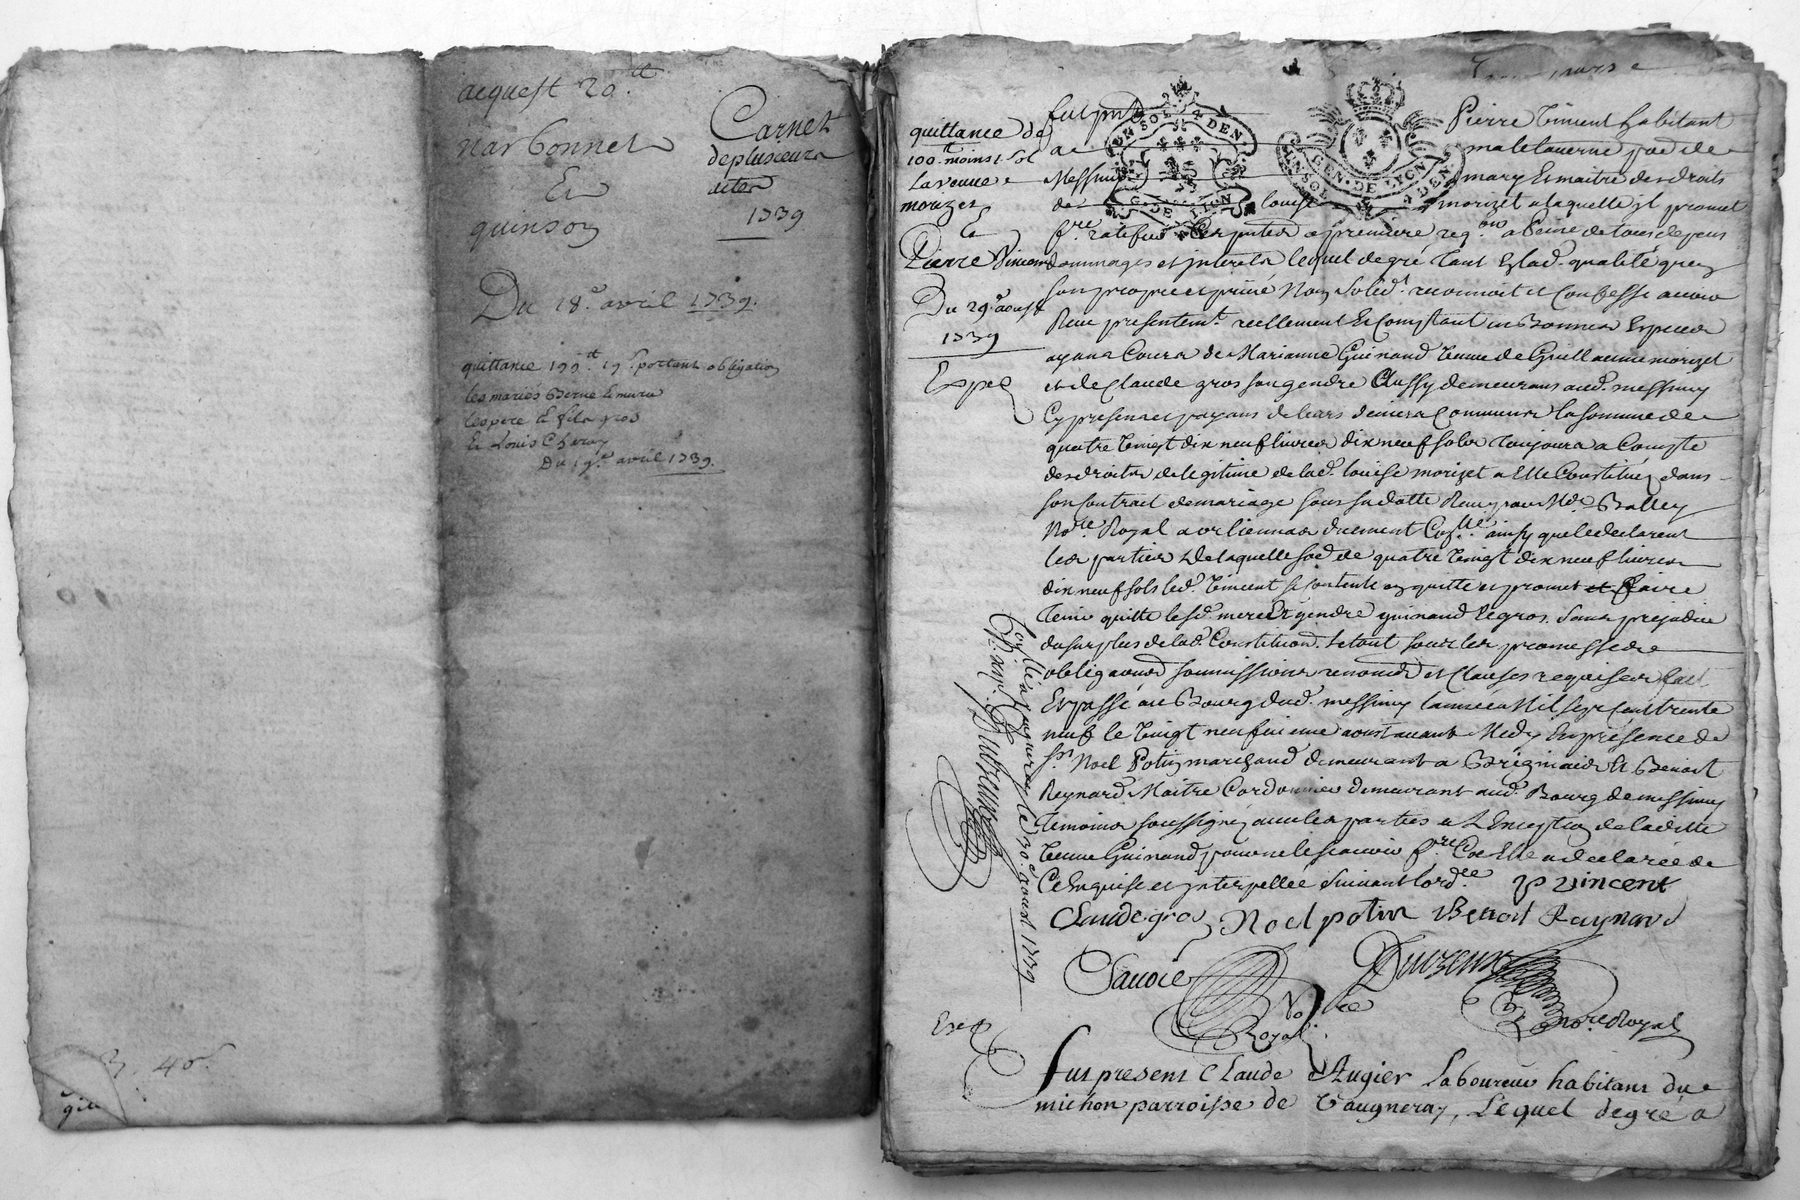 acquest 20.tt
narbonnet
Et
quinson
Du 18.e avril 1739.
quittance 199.tt 19.s portant obligation
les mariés Berne
les pere & fils gros
Et Louis
Du 19.e avril 1739.
Carnet
de plusieurs
actes
1739
3. 40s
quittance de
100.tt moins 1. sol
La veuve
morizet
Et
Pierre Vincent
Du 29.e aoust
1739
Exped
UN SOL 4 DEN.
G. DE LYON
GEN. DE LYON
UN SOL 4 DEN
fut pnt Pierre Vincent habitant
a
Messimy mary Et maitre des droits
de louise morizet a laquelle il promet
fre. ratefier Ces pntes a premiere reqon a Peine de tous depens
dommages et interets lequel de gré tant Eslad. qualité quen
son propre et privé Nom solid.t reconnoit et Confesse avoir
Reçu presentemt. reellement Et Comptant en Bonnes Especes
ayans Cours de Marianne Guinand veuve de Guillaume morizet
et de Claude gros son gendre Aussy demeurans aud. messimy
Cy presens et payans de leurs deniers Communs la somme de
quatre vingt dix neuf livres dix neuf sols toujours a Compte
des droits de legitime de lad. louise morizet a Elle Constituez dans
son Contrat de mariage sous sa datte Reçu par Me. Balley
Nore. Royal a orlienas duement Coslle. ainsy que le declarent
les parties De laquelle sode de quatre vingt dix neuf livres
dix neuf sols led. Vincent se contente en quitte et promet et faire
tenir quitte lesd. mere Et gendre guinand & gros. Sans prejudice
du surplus de lad. Constitution. Le tout sous les promesses
obligaons soumissions renonons et Clauses requises fait
Et passé au Bourg dud. messimy l'année Mil sept Cent trente
neuf le vingt neufvieme aoust avant Midy En presence de
sr. Noel Potin marchand demeurant a Brignais Et Benoit
Reynard Maitre Cordonnier demeurant aud. Bourg de messimy
temoins soussignez avec les parties a L'Exception de laditte
veuve Guinand pour ne le sçavoir fre. Coe Elle a declarée de
Ce Enquise et interpellée Suivant lordce. p vincent
Claude gros Noel potin Benoit Raynard
Savoie Nore Royal
Nore Royal
Collé a vaugneray le 30.e aoust 1739
Exped
fut present Claude Augier Laboureur habitant du
michon parroisse de Vaugneray, Lequel de gré a